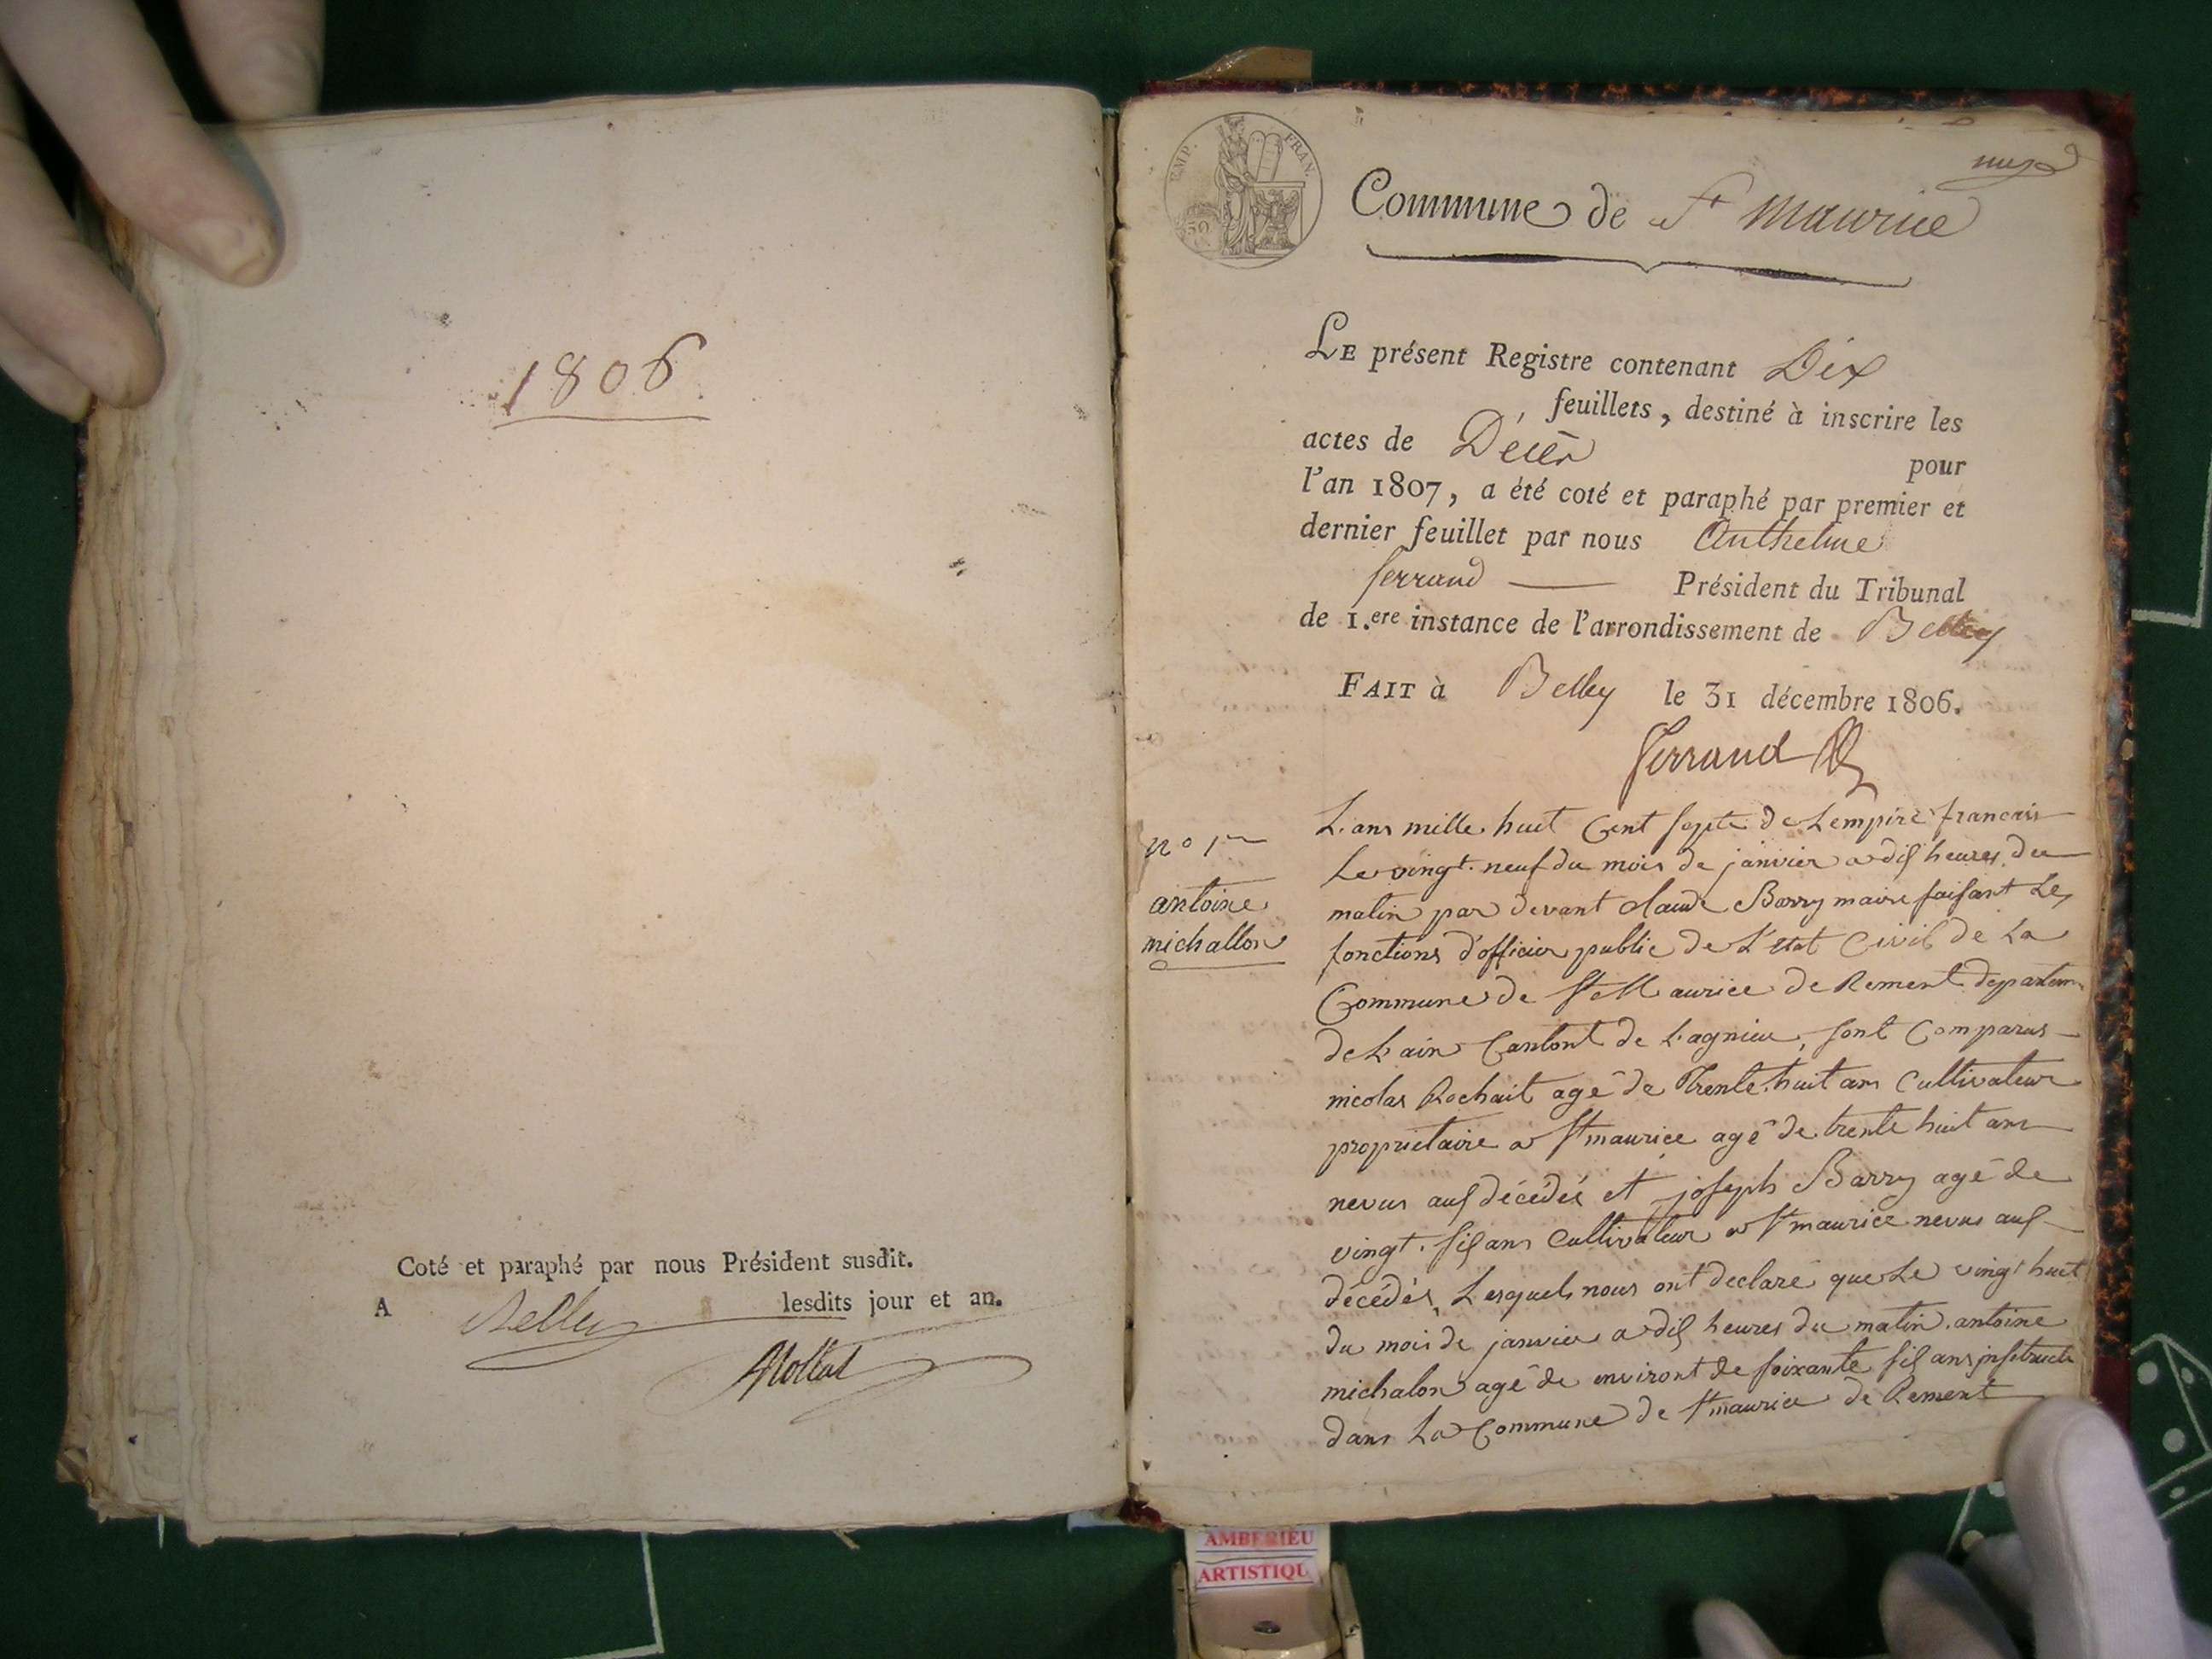 1806
Coté et paraphé par nous Président susdit.
A Belley lesdits jour et an.
EMP. FRAN.
50
Commune de St Maurice
LE présent Registre contenant Dix
feuillets, destiné à inscrire les
actes de Décès pour
l'an 1807, a été coté et paraphé par premier et
dernier feuillet par nous Anthelme
ferrand Président du Tribunal
de 1.ere instance de l'arrondissement de Belley
FAIT à Belley le 31 décembre 1806.
ferrand
no 1er
antoine
michallon
L'ans mille huit Cent septe de L'empire francais
Le vingt-neuf du mois de janvier a dis heures du
matin par devant Claude Barry maire faisant Les
fonctions d'officier public de L'etat Civil de La
Commune de St Maurice de Rement departem
de L'ain Cantont de L'agnieu, sont Comparus
nicolas Rochait agé de Trente huit ans Cultivateur
proprietaire a St maurice agé de trente huit ans
nevus aus décédés et joseph Barry agé de
vingt-sis ans Cultivateur a St maurice nevus aus
décédés, Lesquels nous ont declaré que Le vingt huit
du mois de janvier a dis heures du matin antoine
michalon agé de environt de soixante sis ans
dans La Commune de St maurice de Rement
AMBERIEU
ARTISTIQU